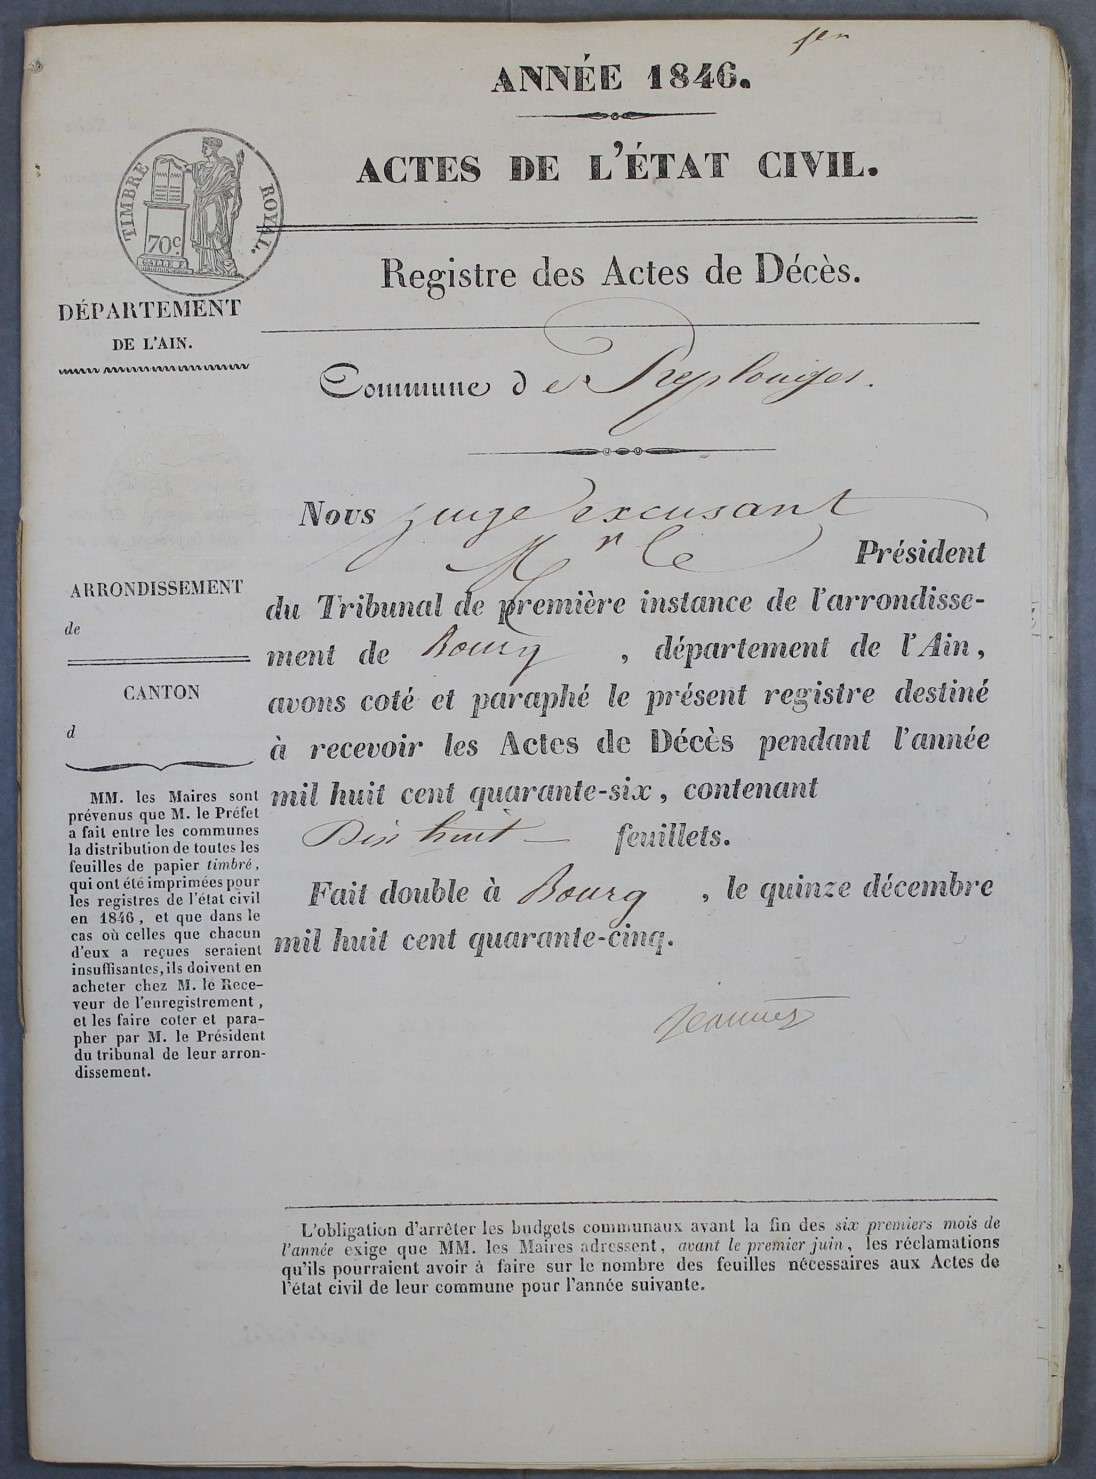 ANNÉE 1846.
ACTES DE L'ÉTAT CIVIL.
TIMBRE ROYAL.
70c.
Registre des Actes de Décès.
DÉPARTEMENT
DE L'AIN.
Commune de Replonges.
Nous juge excusant
Mr le Président
du Tribunal de première instance de l'arrondisse-
ment de Bourg , département de l'Ain,
avons coté et paraphé le présent registre destiné
à recevoir les Actes de Décès pendant l'année
mil huit cent quarante-six, contenant
Dix huit feuillets.
Fait double à Bourg , le quinze décembre
mil huit cent quarante-cinq.
ARRONDISSEMENT
de
CANTON
d
MM. les Maires sont
prévenus que M. le Préfet
a fait entre les communes
la distribution de toutes les
feuilles de papier timbré,
qui ont été imprimées pour
les registres de l'état civil
en 1846, et que dans le
cas où celles que chacun
d'eux a reçues seraient
insuffisantes, ils doivent en
acheter chez M. le Rece-
veur de l'enregistrement,
et les faire coter et para-
pher par M. le Président
du tribunal de leur arron-
dissement.
L'obligation d'arrêter les budgets communaux avant la fin des six premiers mois de
l'année exige que MM. les Maires adressent, avant le premier juin, les réclamations
qu'ils pourraient avoir à faire sur le nombre des feuilles nécessaires aux Actes de
l'état civil de leur commune pour l'année suivante.